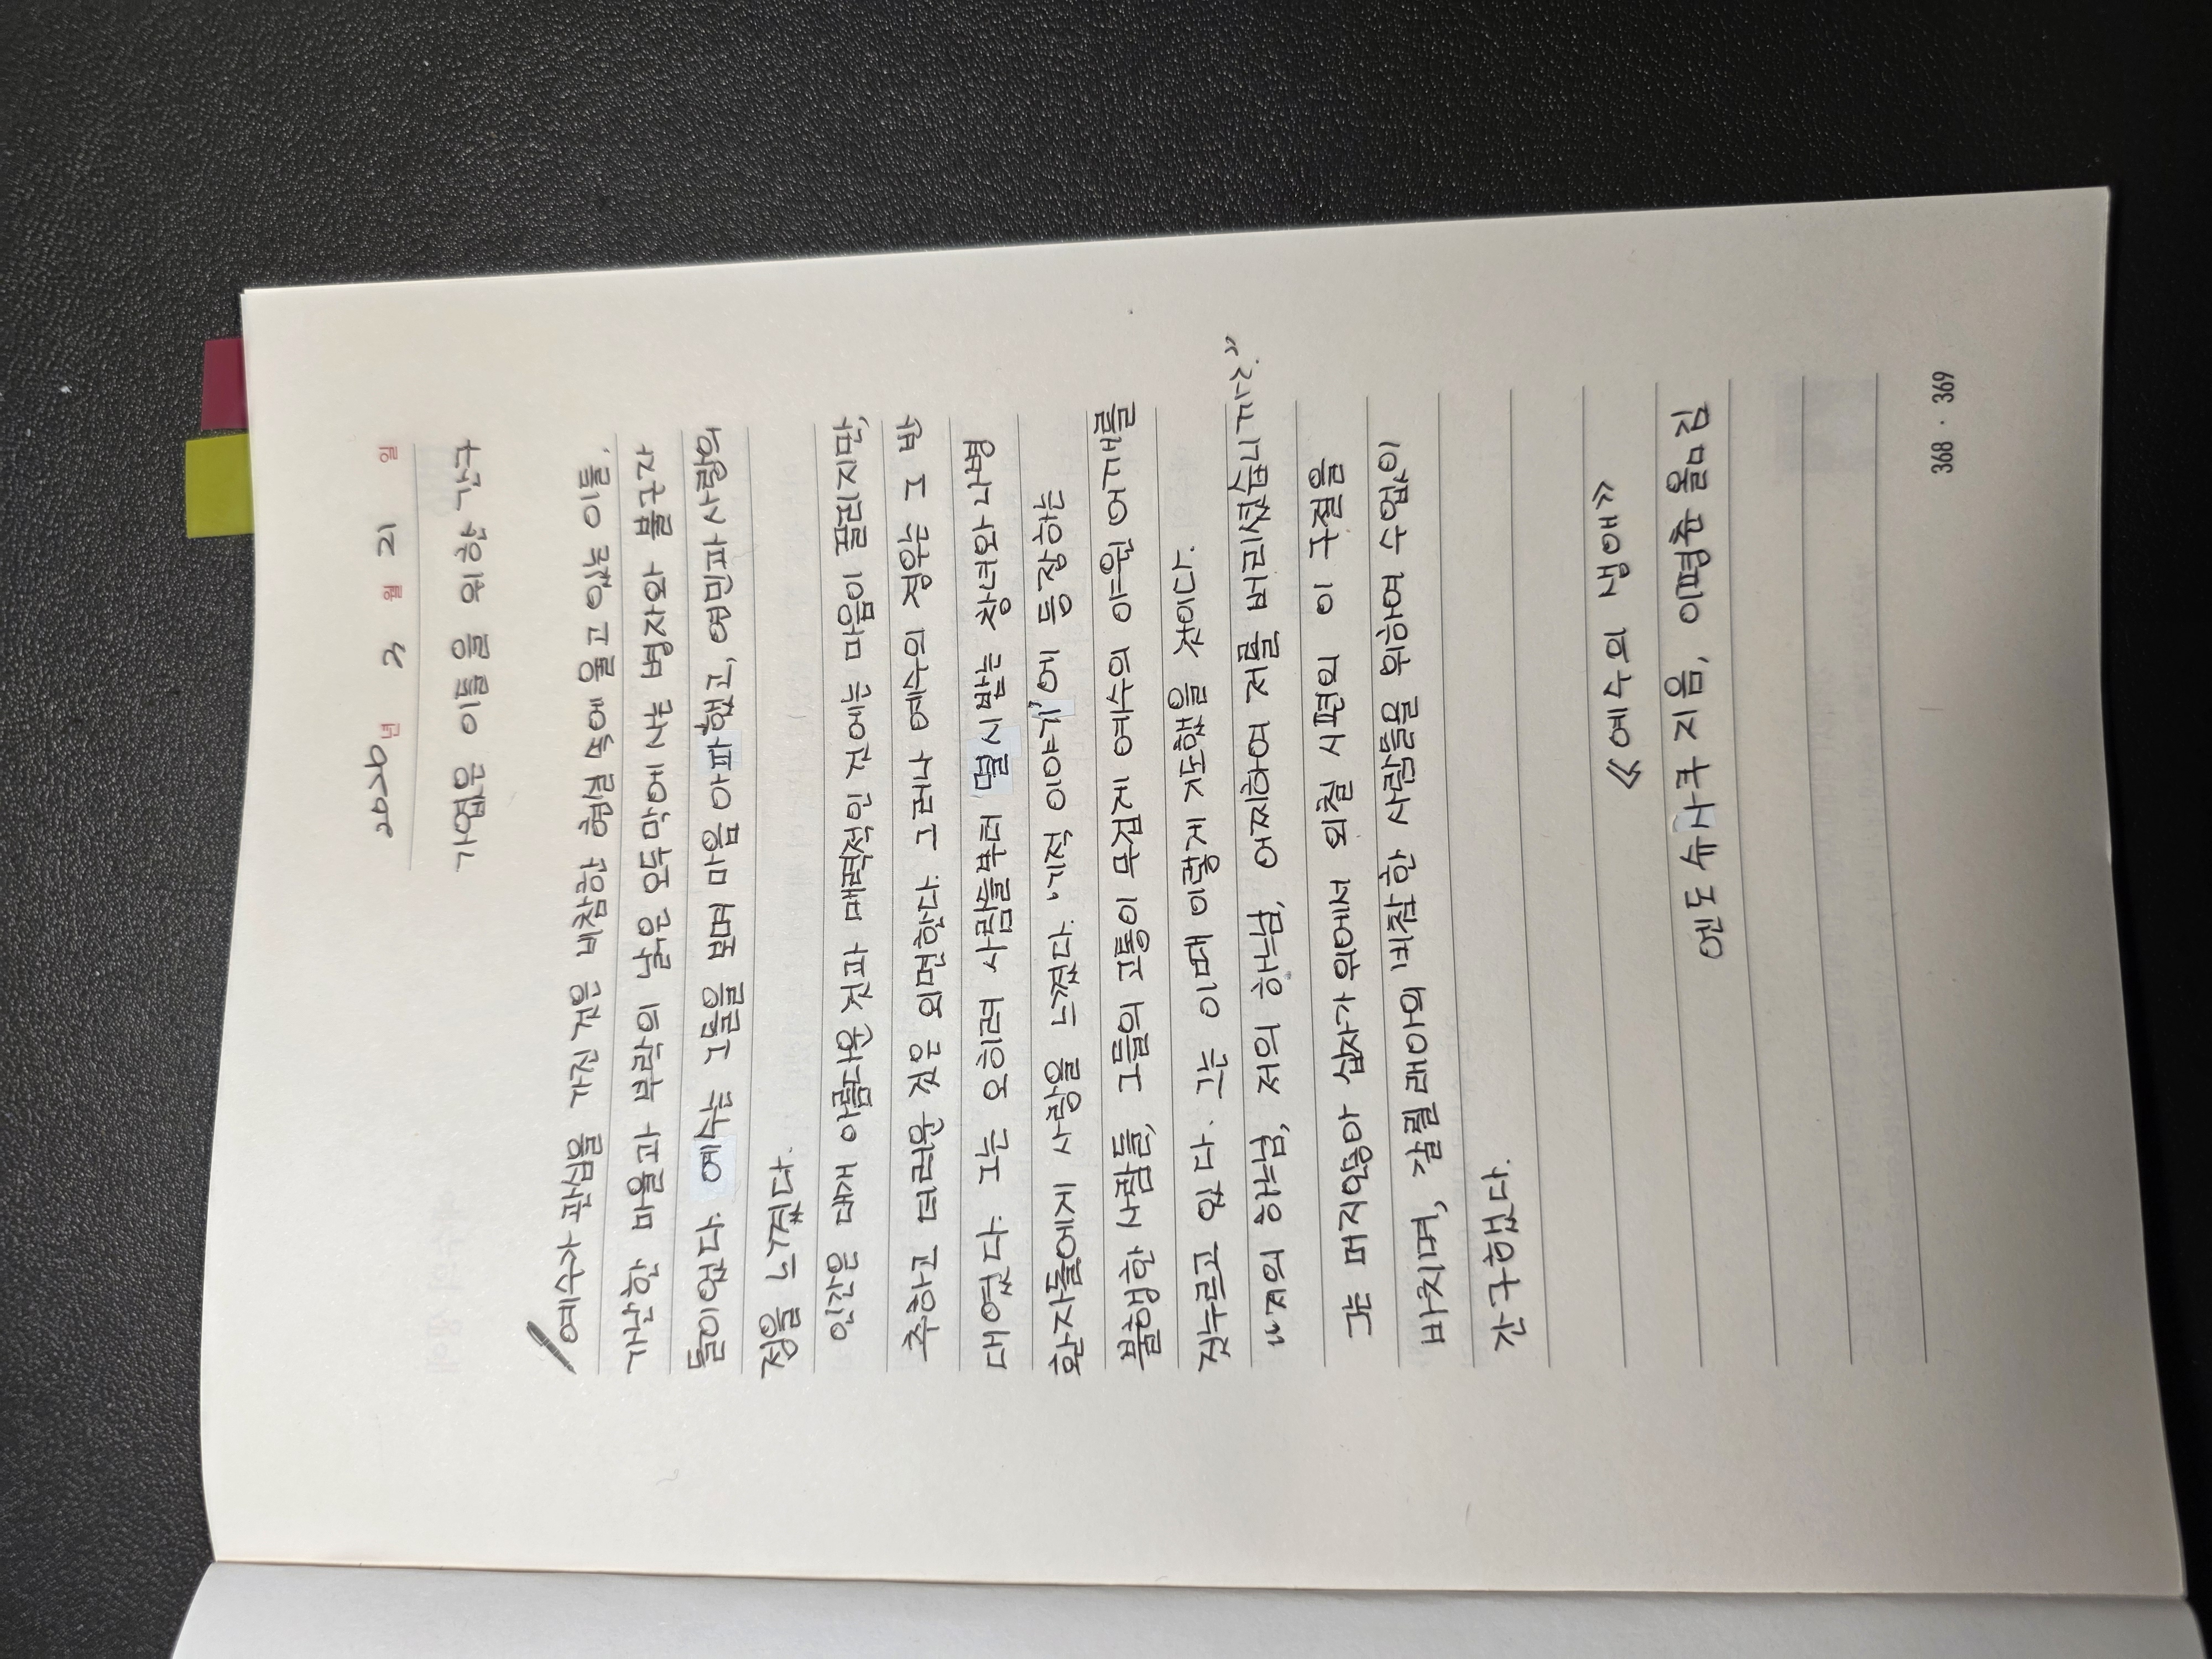 2026년 3월 21일
가엾은 이들을 위한 간구
예수가 관심을 가진 것은 비참한 현실 속에 울고 있는 이들,
가난한 마을과 부락의 낡은 오두막에 사는 병자와 불구자
들이었다. 예수는 그들을 보며 마음 아파했고, 연민과 사랑의
정을 느꼈다.
인간은 대개 아름다운 것과 매력적인 것에는 마음이 끌리지만,
추하고 더러운 것은 외면한다. 그러나 예수의 경우는 그 반
대였다. 그는 오히려 사람들부터 멸시받는 창녀와 나병
환자들에게 사랑을 느꼈다. '기적 이야기'에 등장하는
불행한 사람들, 그들의 고통이 무겁게 예수의 야윈 어깨를
짓누르고 있다. 그는 이때 이렇게 기도했을 것이다.
"저의 하느님, 저의 하느님, 어찌하여 저를 버리셨습니까?"
그는 머지않아 십자가 위에서 외칠 시편의 이 구절을
바치며, 갈릴래아의 비참한 사람들을 위하여 수없이
간구했다.
《예수의 생애》
엔도 슈사쿠 지음, 이평춘 옮김
368 · 369